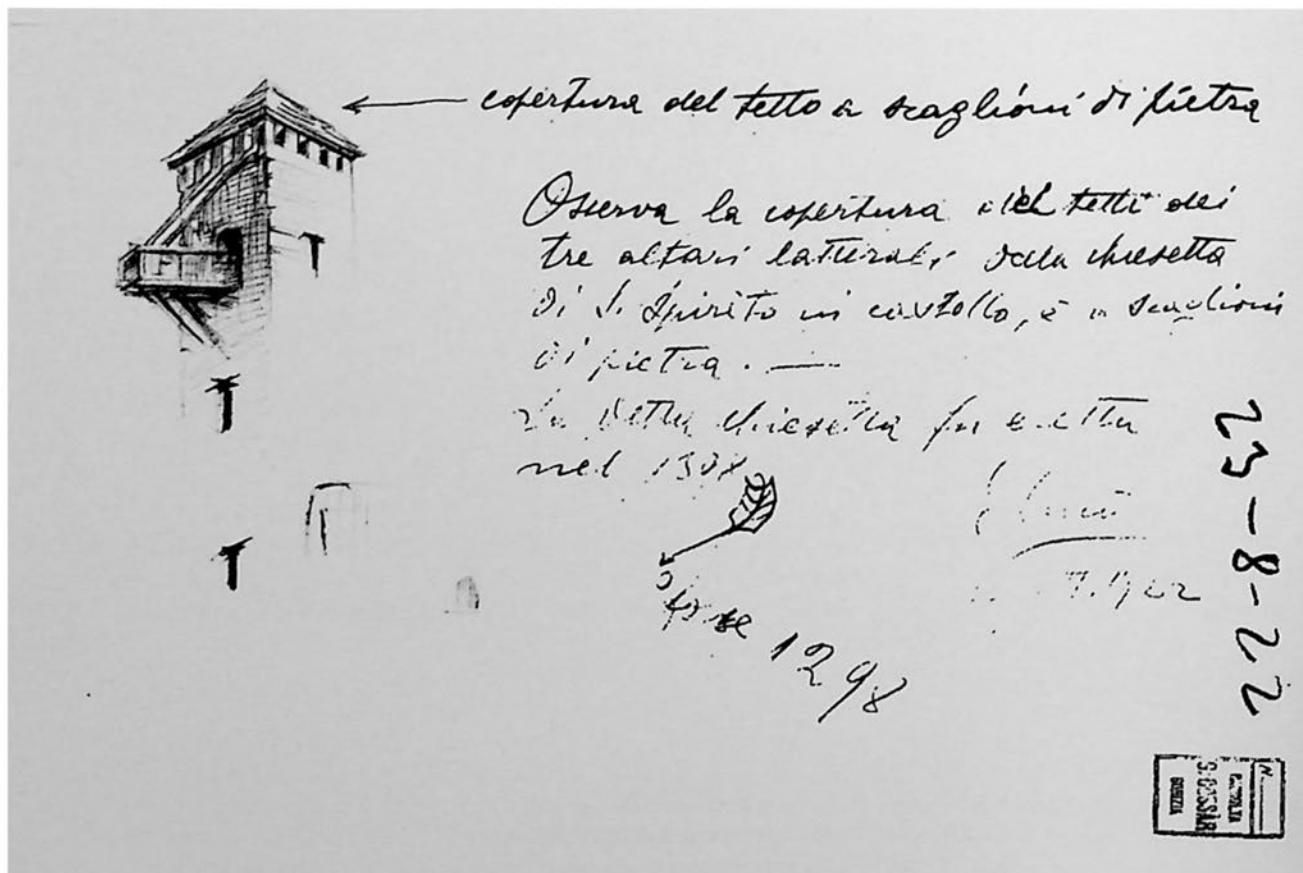 copertura del tetto a scaglioni di pietra
Osserva la copertura del tetti dei
tre altari laterali della chiesetta
di S. Spirito in castello, è a scaglioni
di pietra. —
La detta chiesetta fu eretta
nel 1308
forse 1298
23-8-22
F
N.
RACCOLTA
GORIZIA